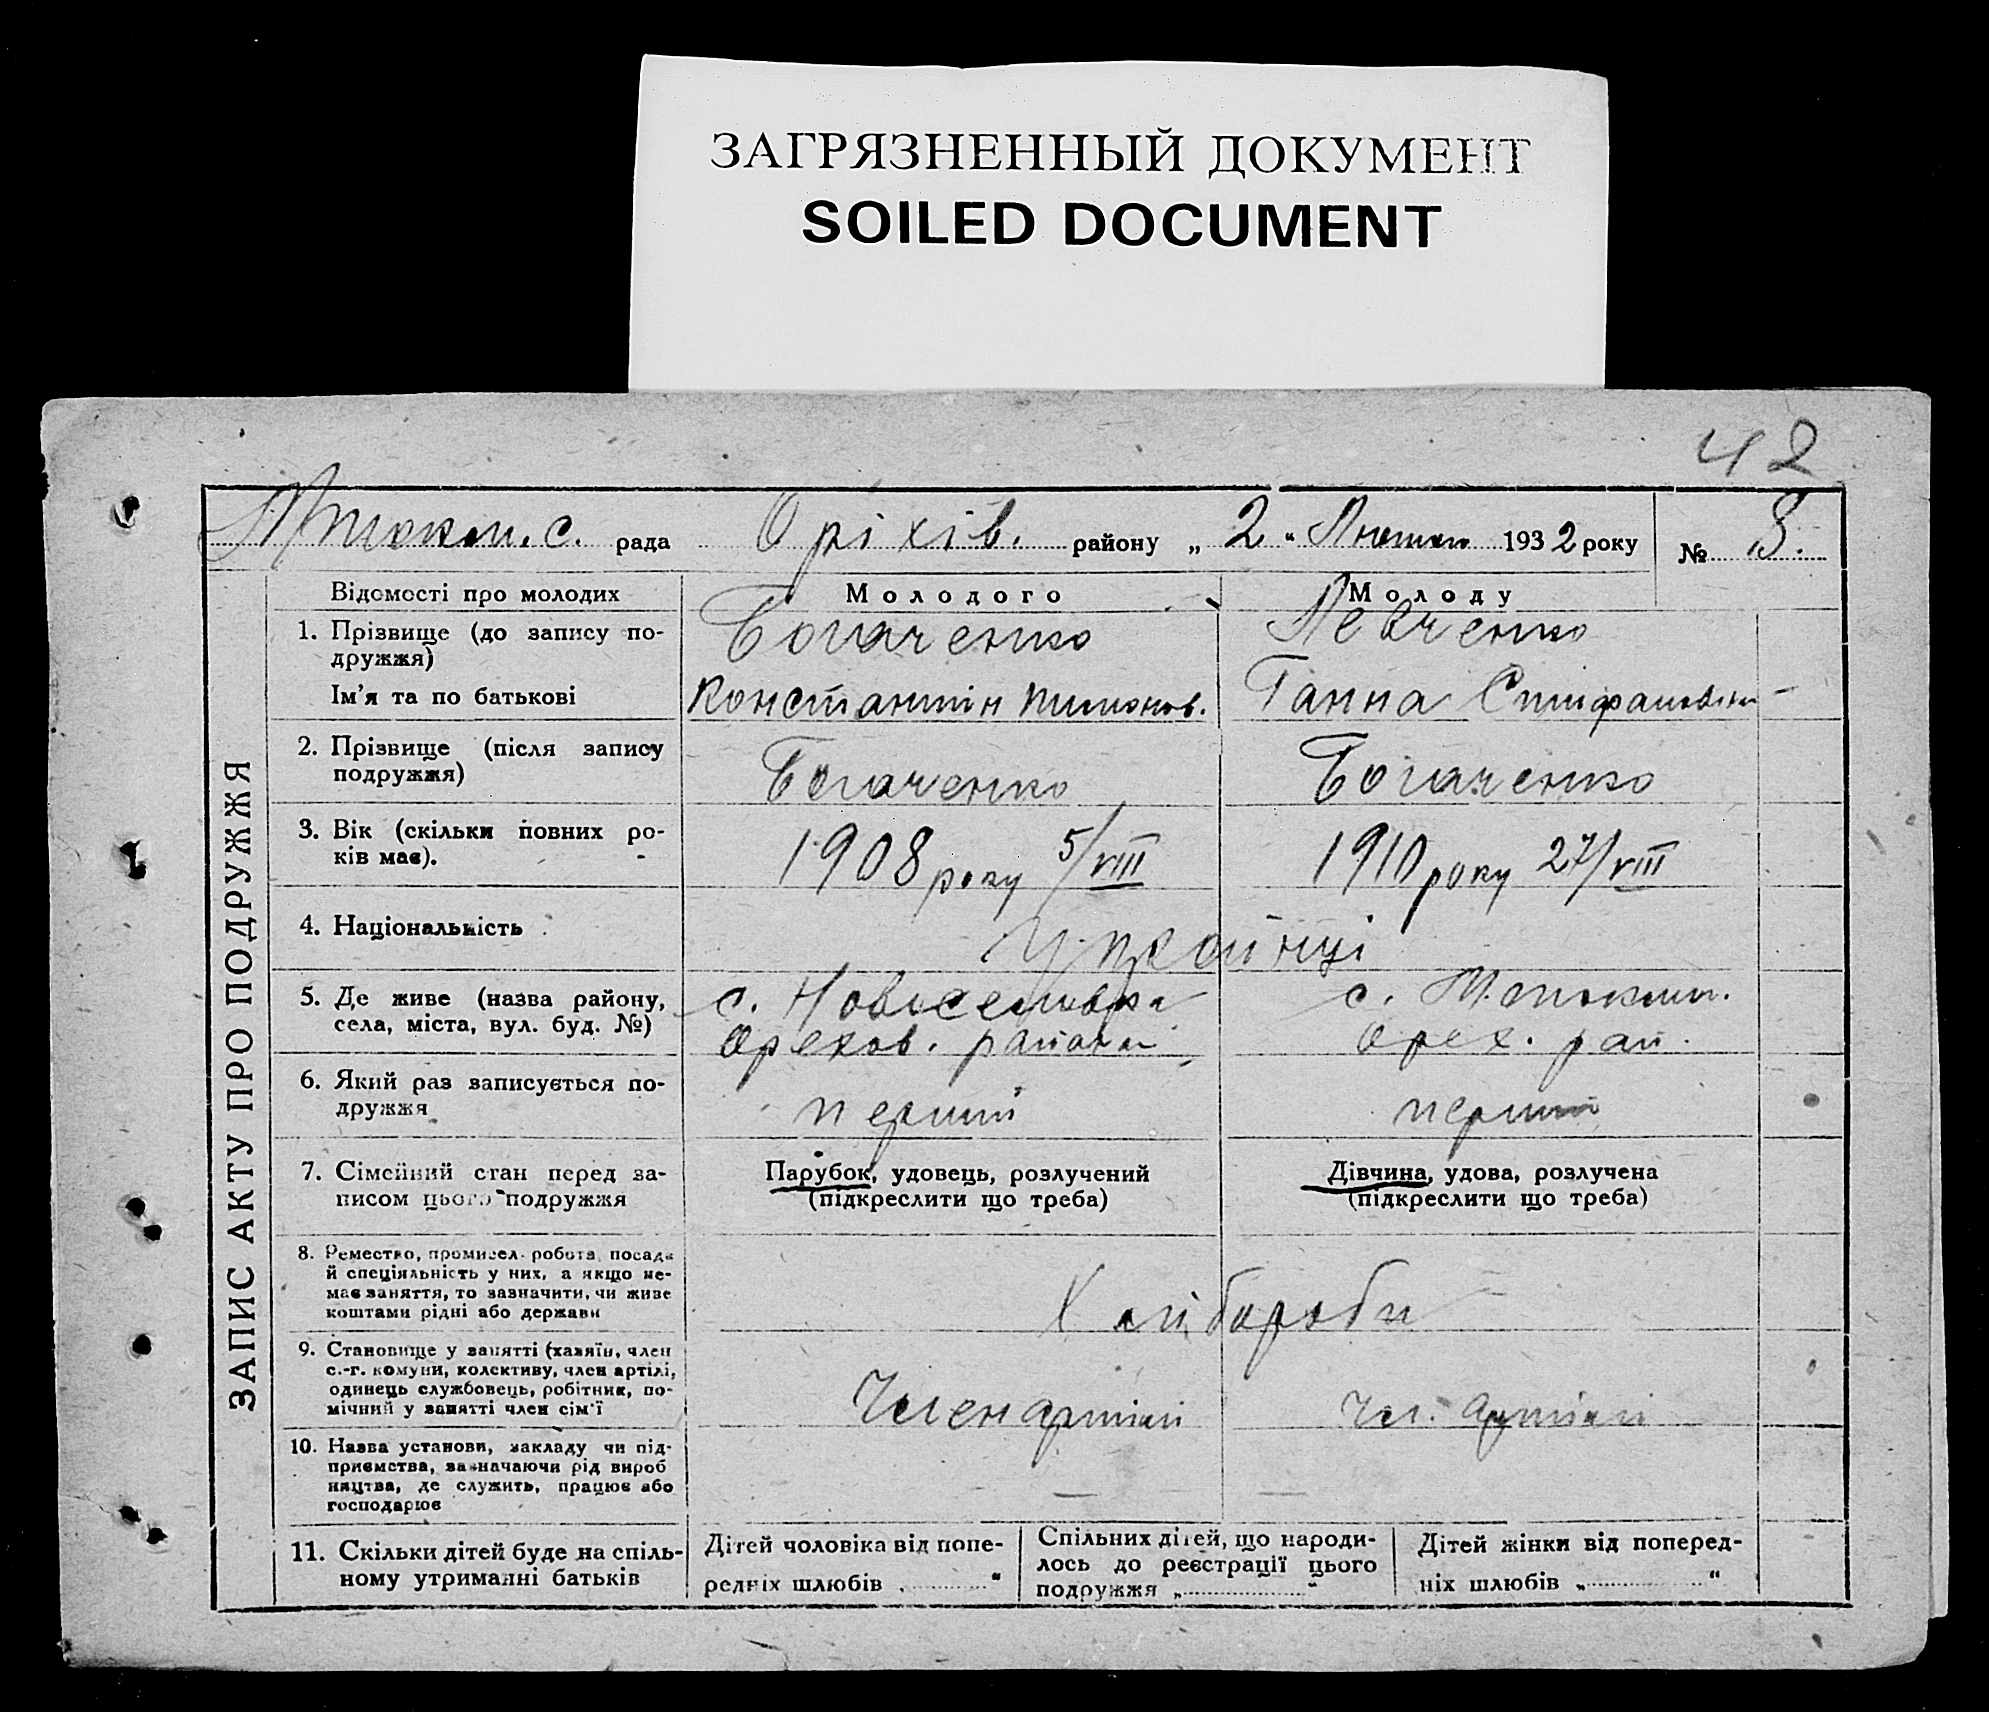 ЗАГРЯЗНЕННЫЙ ДОКУМЕНТ
SOILED DOCUMENT
42
М.Токм. с. рада Оріхів. району „ 2 “ Лютого 1932 року № 8.
ЗАПИС АКТУ ПРО ПОДРУЖЖЯ
Відомості про молодих Молодого Молоду
1. Прізвище (до запису по-
дружжя) Богаченко Левченко
Ім'я та по батькові Константін Пимонов. Ганна Стифановна
2. Прізвище (після запису
подружжя) Богаченко Богаченко
3. Вік (скільки повних ро-
ків має). 1908 року 5/VIII 1910 року 27/VIII
4. Національність Українці
5. Де живе (назва району, с. Новоселовка с. М. Токмач.
села, міста, вул. буд. №) Орехов. району Орех. рай.
6. Який раз записується по-
дружжя перший перший
7. Сімейний стан перед за- Парубок, удовець, розлучений Дівчина, удова, розлучена
писом цього подружжя (підкреслити що треба) (підкреслити що треба)
8. Ремество, промисел. робота, посада
й спеціяльність у них, а якщо не-
має заняття, то зазначити, чи живе
коштами рідні або держави Хлібороби
9. Становище у занятті (хазяїн, член
с.-г. комуни, колективу, член артілі,
одинець службовець, робітник, по-
мічний у занятті член сім'ї Член артілі Чл. артілі
10. Назва установи, закладу чи під-
приємства, зазначаючи рід вироб
ництва, де служить, працює або
господарює — —
11. Скільки дітей буде на спіль-
ному утриманні батьків
Дітей чоловіка від попе-
редніх шлюбів „ “
Спільних дітей, що народи-
лось до реєстрації цього
подружжя „ “
Дітей жінки від поперед-
ніх шлюбів „ “